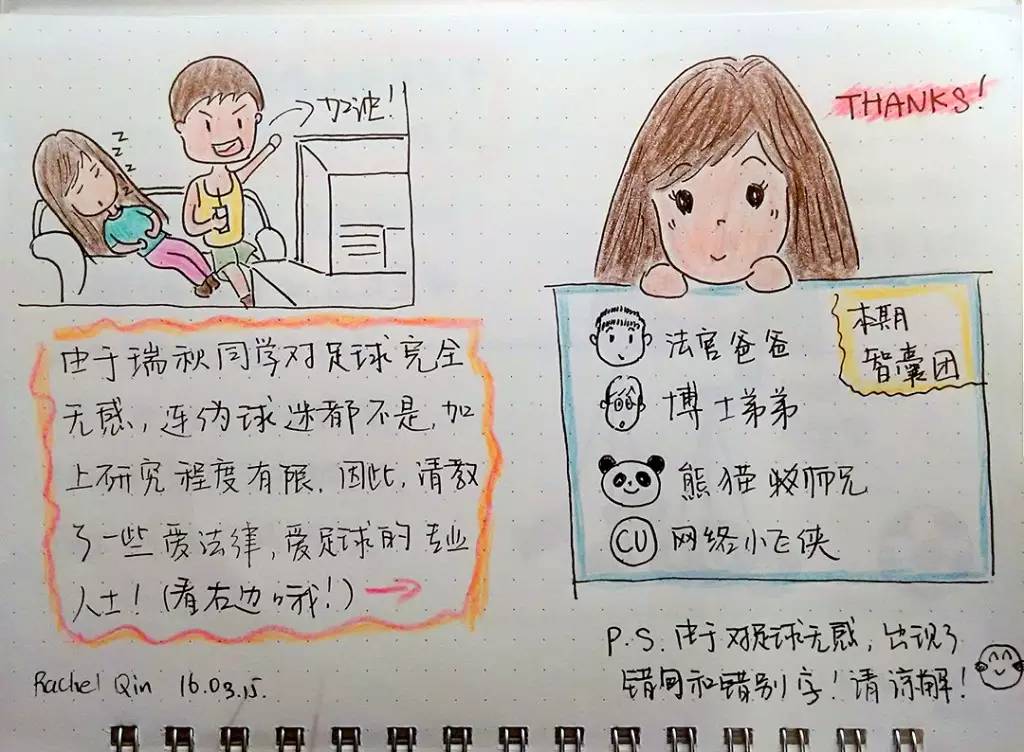 z z z
加油!
由于瑞秋同学对足球完全
无感,连伪球迷都不是,加
上研究程度有限,因此,请教
了一些爱法律,爱足球的专业
人士!(看右边哦!)→
Rachel Qin 16.03.15.
THANKS!
本期
智囊团
法官爸爸
博士弟弟
熊猫 师兄
CU 网络小飞侠
P.S. 由于对足球无感,出现了
错句和错别字!请谅解!